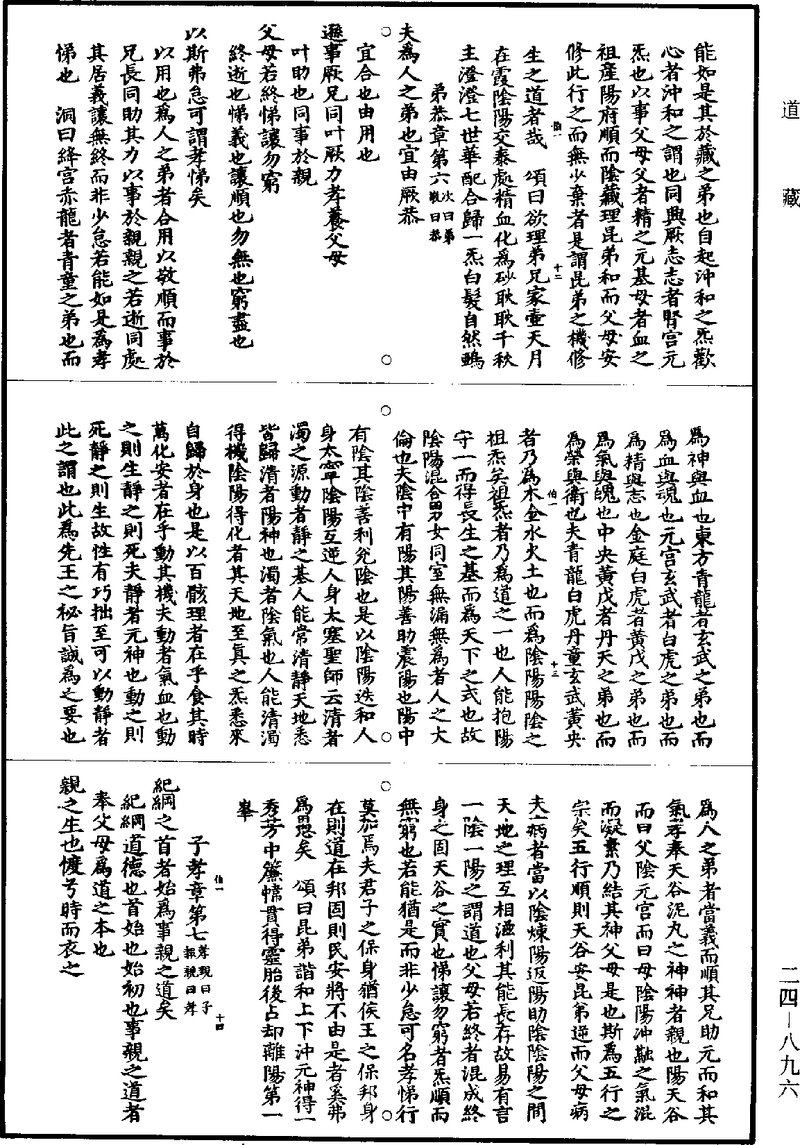 道藏
能如是其於藏之弟也自起沖和之炁歡
心者沖和之謂也同興厥志志者腎宮元
炁也以事父母父者精之元基母者血之
祖產陽府順而陰藏理昆弟和而父母安
修此行之而無少棄者是謂昆弟之機修
生之道者哉　頌曰欲理弟兄家壼天月
在霞陰陽交泰處精血化為砂耿耿千秋
主澄澄七世華配合歸一炁白髮自然鵶
弟恭章第六次曰弟敬曰恭
夫為人之弟也宜由厥恭
宜合也由用也
遜事厥兄同叶厥力孝養父母
叶助也同事於親
父母若終悌讓勿窮
終逝也悌義也讓順也勿無也窮盡也
以斯弗怠可謂孝悌矣
以用也為人之弟者合用以敬順而事於
兄長同助其力以事於親親之若逝同處
其居義讓無終而非少怠若能如是為孝
悌也　洞曰絳宮赤龍者青童之弟也而
為神與血也東方青龍者玄武之弟也而
為血與魂也元宮玄武者白虎之弟也而
為精與志也金庭白虎者黃戊之弟也而
為氣與魄也中央黃戊者丹天之弟也而
為榮與衛也夫青龍白虎丹童玄武黃央
者乃為木金水火土也而為陰陽陽陰之
祖炁矣祖炁者乃為道之一也人能抱陽
守一而得長生之基而為天下之式也故
陰陽混合男女同室無漏無為者人之大
倫也夫陰中有陽其陽善助震陽也陽中
有陰其陰善利兌陰也是以陰陽迭和人
身太寧陰陽互逆人身太塞聖師云清者
濁之源動者靜之基人能常清靜天地悉
皆歸清者陽神也濁者陰氣也人能清濁
得機陰陽得化者其天地至真之炁悉來
自歸於身也是以百骸理者在乎食其時
萬化安者在乎動其機夫動者氣血也動
之則生靜之則死夫靜者元神也動之則
死靜之則生故性有巧拙至可以動靜者
此之謂也此為先王之祕旨誠為之要也
為人之弟者當義而順其兄助元而和其
氣孝奉天谷泥丸之神神者親也陽天谷
而曰父陰元宮而曰母陰陽沖融之氣混
而凝素乃結其神父母是也斯為五行之
宗矣五行順則天谷安昆弟逆而父母病
夫病者當以陰煉陽返陽助陰陰陽之間
天地之理互相濟利其能長存故易有言
一陰一陽之謂道也父母若終者混成終
身之固天谷之實也悌讓勿窮者炁順而
無窮也若能猶是而非少怠可名孝悌行
莫加焉夫君子之保身猶侯王之保邦身
在則道在邦固則民安將不由是者奚弗
為愚矣　頌曰昆弟諧和上下沖元神得一
秀芳中簾幃貫得靈胎後占却離陽第一
峯
子孝章第七孝現曰子報親曰孝
紀綱之首者始為事親之道矣
紀綱道德也首始也始初也事親之道者
奉父母為道之本也
親之生也懷兮時而衣之
伯一
十二
伯一
十三
伯一
十四
二四—八九六